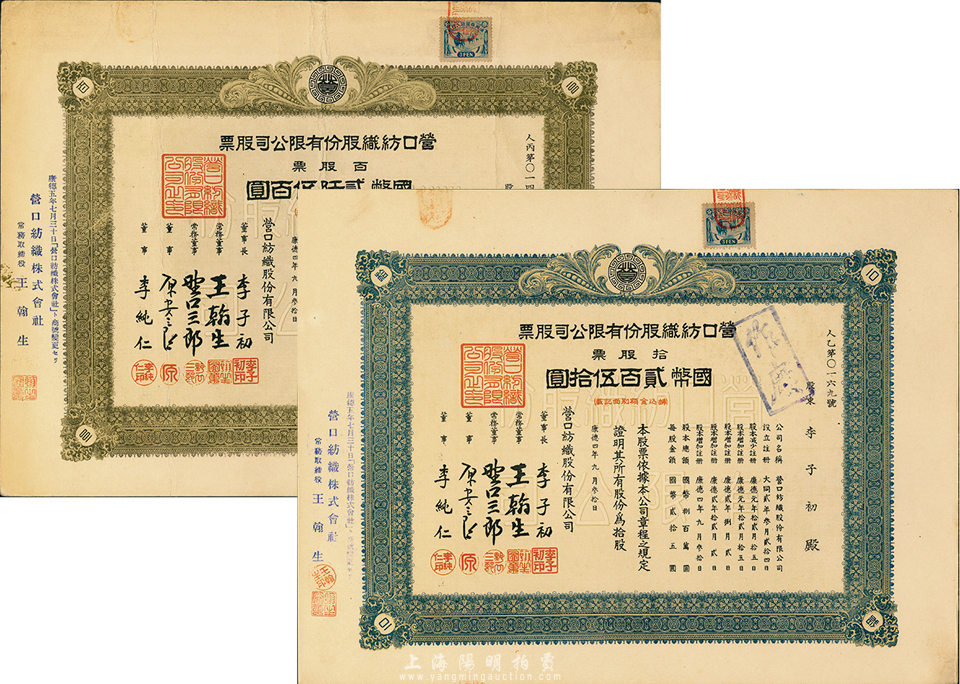 人丙第〇一四
營口紡織股份有限公司股票
百股票
國幣貳仟伍百圓
康德四年六月叁拾日
營口紡織股份有限公司
董事長 李子初
常務董事 王翰生
常務董事 野口三郎
董事
董事 李純仁
康德五年七月三十日「營口紡織株式會社」ト商號變更セリ
營口紡織株式會社
常務取締役 王翰生
人乙第〇一六九號
營口紡織股份有限公司股票
拾股票
國幣貳百伍拾圓
股東 李子初殿
公司名稱 營口紡織股份有限公司
設立註册 大同貳年叁月貳拾四日
股本減少註册 康德元年拾貳月拾五日
股本增加註册 康德元年拾貳月拾五日
股本增加註册 康德貳年拾貳月貳日
股本增加註册 康德四年九月叁拾日
股本總額 國幣捌百萬圓
每股金額 國幣貳拾五圓
本股票依據本公司章程之規定
證明其所有股份爲拾股
康德四年九月叁拾日
營口紡織股份有限公司
董事長 李子初
常務董事 王翰生
常務董事 野口三郎
董事
董事 李純仁
康德五年七月三十日「營口紡織株式會社」
營口紡織株式會社
常務取締役 王翰生
上海陽明拍賣
www.yangmingauction.com